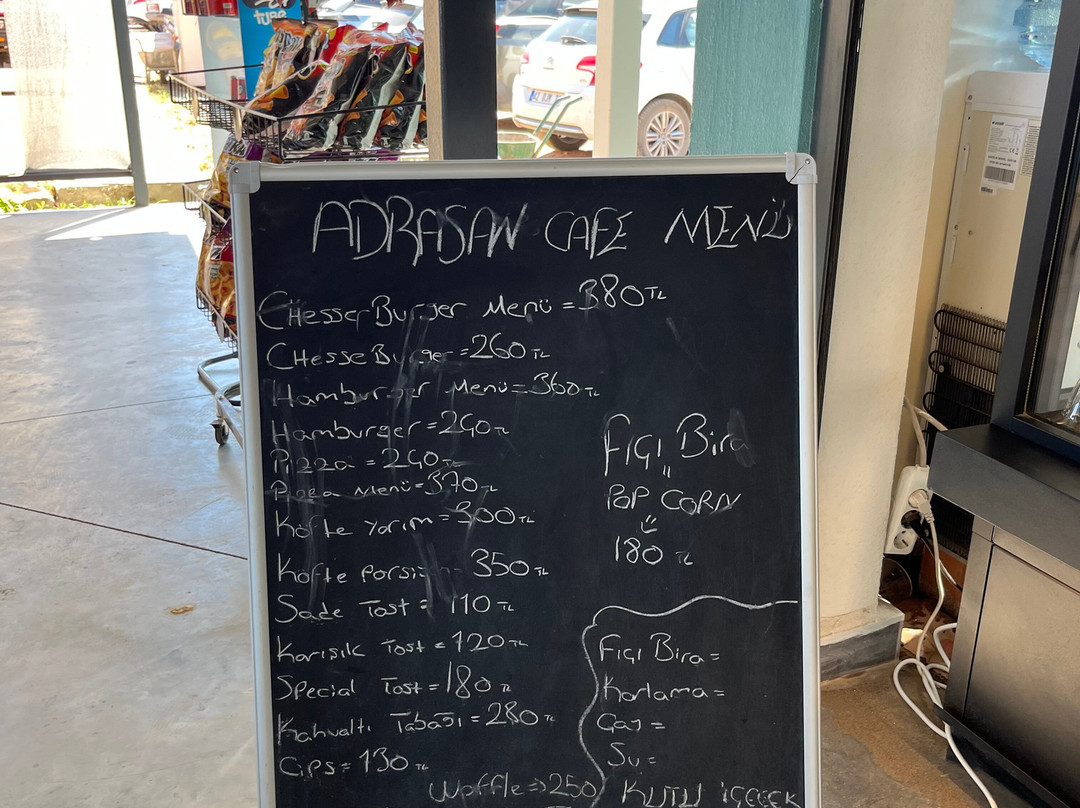 ADRASAN CAFE MENÜ
CHesserBurger Menü = 380 TL
CHesse Burger = 260 TL
Hamburger Menü = 360 TL
Hamburger = 240 TL
Pizza = 240 TL
Pizza Menü = 370 TL
Köfte Yarım = 300 TL
Köfte Porsiyon = 350 TL
Sade Tost = 110 TL
Karışık Tost = 120 TL
Special Tost = 180 TL
Kahvaltı Tabağı = 280 TL
Cips = 130 TL
Waffle => 250
FIÇI Bira
POP CORN
180 TL
FIÇI Bira =
Karlama =
Çay =
Su =
KUTU İÇECEK